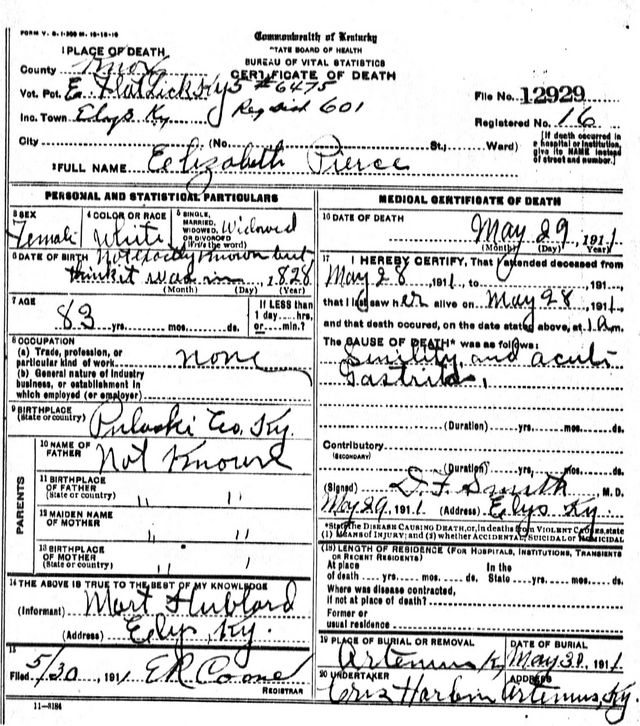 FORM V. S. 1-200 M. 10-15-10
Commonwealth of Kentucky
STATE BOARD OF HEALTH
BUREAU OF VITAL STATISTICS
CERTIFICATE OF DEATH
1 PLACE OF DEATH
County Knox
Vot. Pct. E. Flat Lick Ky 5 #6475
Inc. Town Elys Ky Reg Dist 601
File No. 12929
Registered No. 16
City (No. St.; Ward)
[If death occurred in a hospital or institution, give its NAME instead of street and number.]
2 FULL NAME Elizabeth Pierce
PERSONAL AND STATISTICAL PARTICULARS
3 SEX Female
4 COLOR OR RACE White
5 SINGLE, MARRIED, WIDOWED, OR DIVORCED (Write the word) Widowed
6 DATE OF BIRTH Not exactly known but
think it was in, 1828
(Month) (Day) (Year)
7 AGE 83 yrs. mos. ds.
If LESS than 1 day hrs. or min.?
8 OCCUPATION
(a) Trade, profession, or particular kind of work none
(b) General nature of industry business, or establishment in which employed (or employer)
9 BIRTHPLACE (State or country) Pulaski Co, Ky
PARENTS
10 NAME OF FATHER Not Known
11 BIRTHPLACE OF FATHER (State or country) " "
12 MAIDEN NAME OF MOTHER " "
13 BIRTHPLACE OF MOTHER (State or country) " "
14 THE ABOVE IS TRUE TO THE BEST OF MY KNOWLEDGE
(Informant) Mart Hubbard
(Address) Elys, Ky.
15
Filed 5/30 1911
REGISTRAR
11-8184
MEDICAL CERTIFICATE OF DEATH
16 DATE OF DEATH May 29, 1911
(Month) (Day) (Year)
17 I HEREBY CERTIFY, That I attended deceased from
May 28, 1911 to , 191
that I last saw her alive on May 28, 1911
and that death occured, on the date stated above, at 1 A.m.
The CAUSE OF DEATH* was as follows:
Senility, and acute
Gastritis,
(Duration) yrs. mos. ds.
Contributory (SECONDARY)
(Duration) yrs. mos. ds.
(Signed) D. F. Smith M. D.
May 29, 1911 (Address) Elys Ky.
*State the DISEASE CAUSING DEATH, or, in deaths from VIOLENT CAUSES, state
(1) MEANS OF INJURY; and (2) whether ACCIDENTAL, SUICIDAL or HOMICIDAL
(18) LENGTH OF RESIDENCE (FOR HOSPITALS, INSTITUTIONS, TRANSIENTS OR RECENT RESIDENTS)
At place of death yrs. mos. ds. In the State yrs. mos. ds.
Where was disease contracted, if not at place of death?
Former or usual residence
19 PLACE OF BURIAL OR REMOVAL Artemus Ky
DATE OF BURIAL May 30, 1911
20 UNDERTAKER
ADDRESS Artemus, Ky.